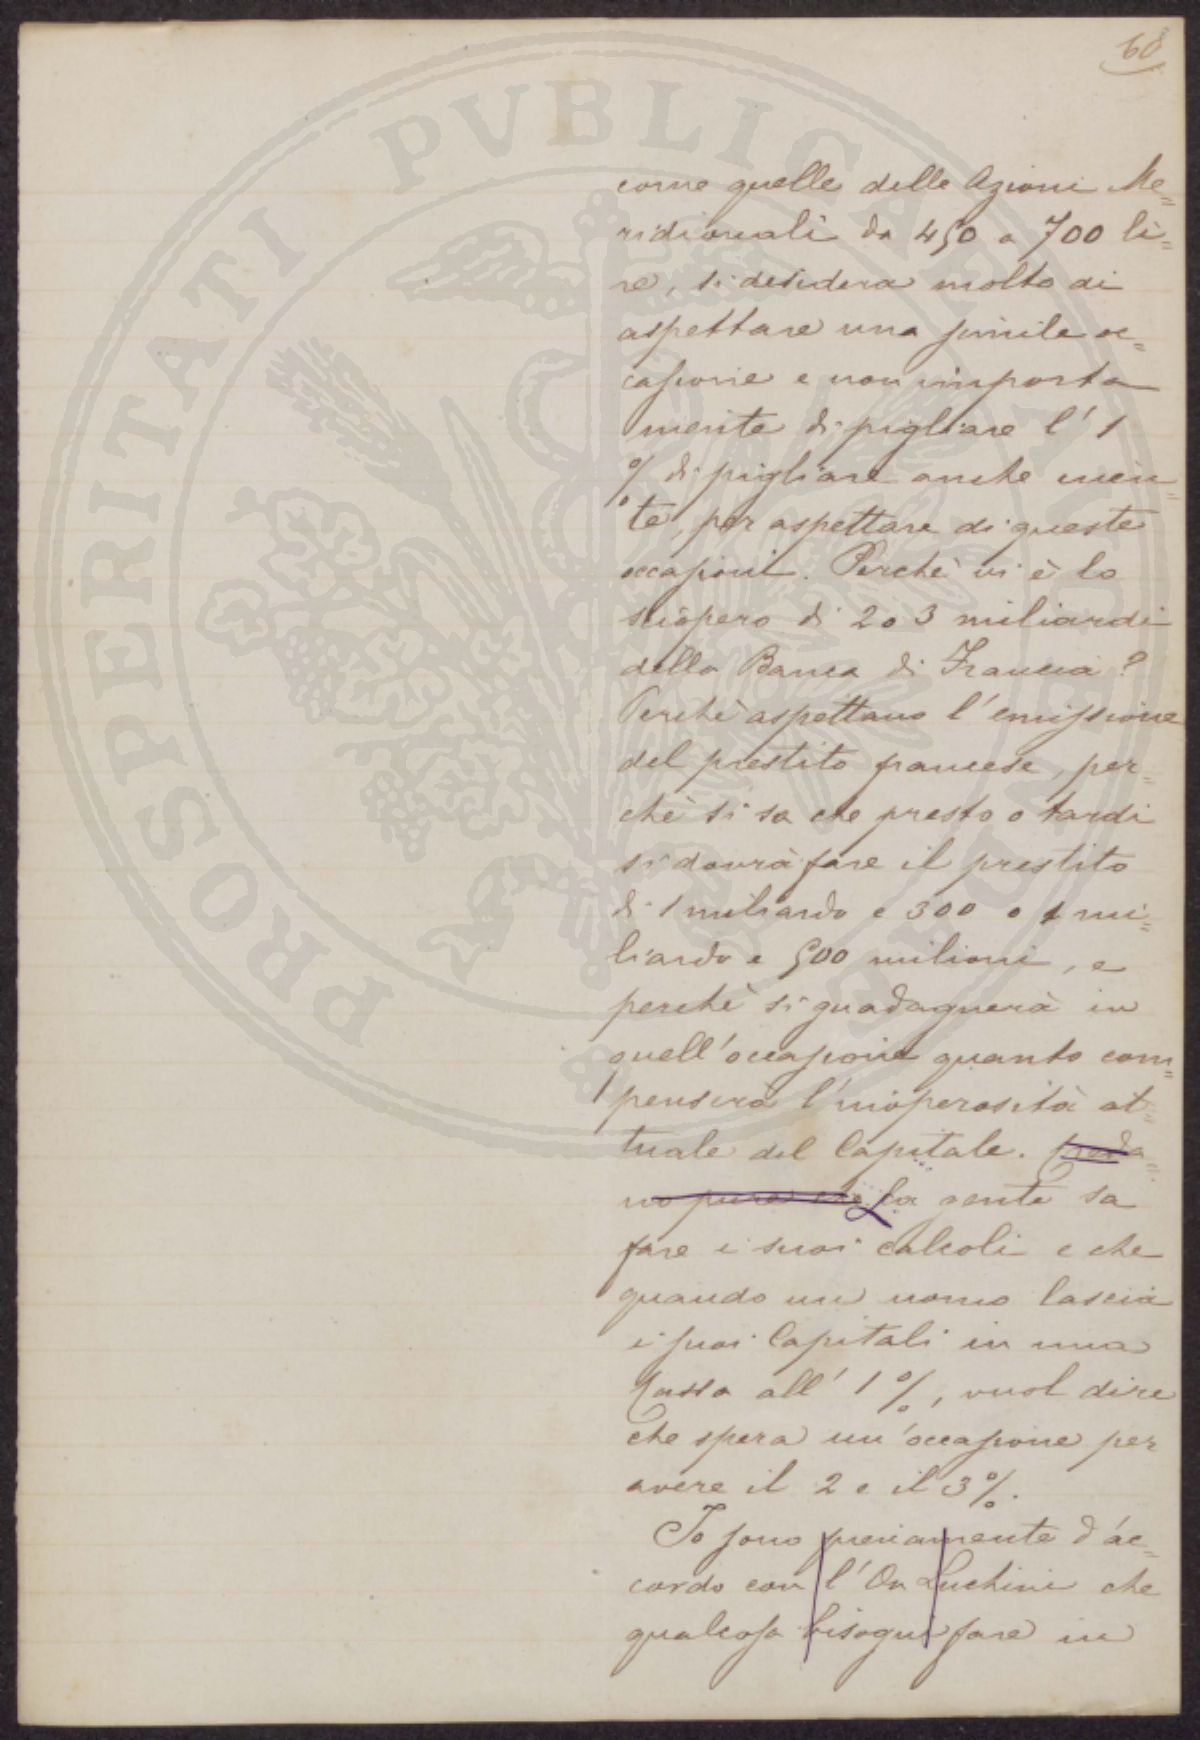 68
come quelle delle Azioni Me=
ridionali da 450 a 700 li=
re, si desidera molto di
aspettare una simile oc=
casione e non importa
niente di pigliare l'1
% di pigliare anche nien=
te, per aspettare di queste
occasioni. Perchè vi è lo
sciopero di 2 o 3 miliardi
della Banca di Francia?
Perchè aspettano l'emissione
del prestito francese, per=
chè si sa che presto o tardi
si dovrà fare il prestito
di 1 miliardo e 300 o 1 mi=
liardo e 500 milioni, e
perchè si guadagnerà in
quell'occasione quanto com=
penserà l'inoperosità at=
tuale del Capitale. Creda=
no pure che la gente sa
fare i suoi calcoli e che
quando un uomo lascia
i suoi Capitali in una
Cassa all'1%, vuol dire
che spera un'occasione per
avere il 2 e il 3%.
Io sono pienamente d'ac=
cordo con l'On Luchini che
qualcosa bisogni fare in
PROSPERITATI PVBLICAE